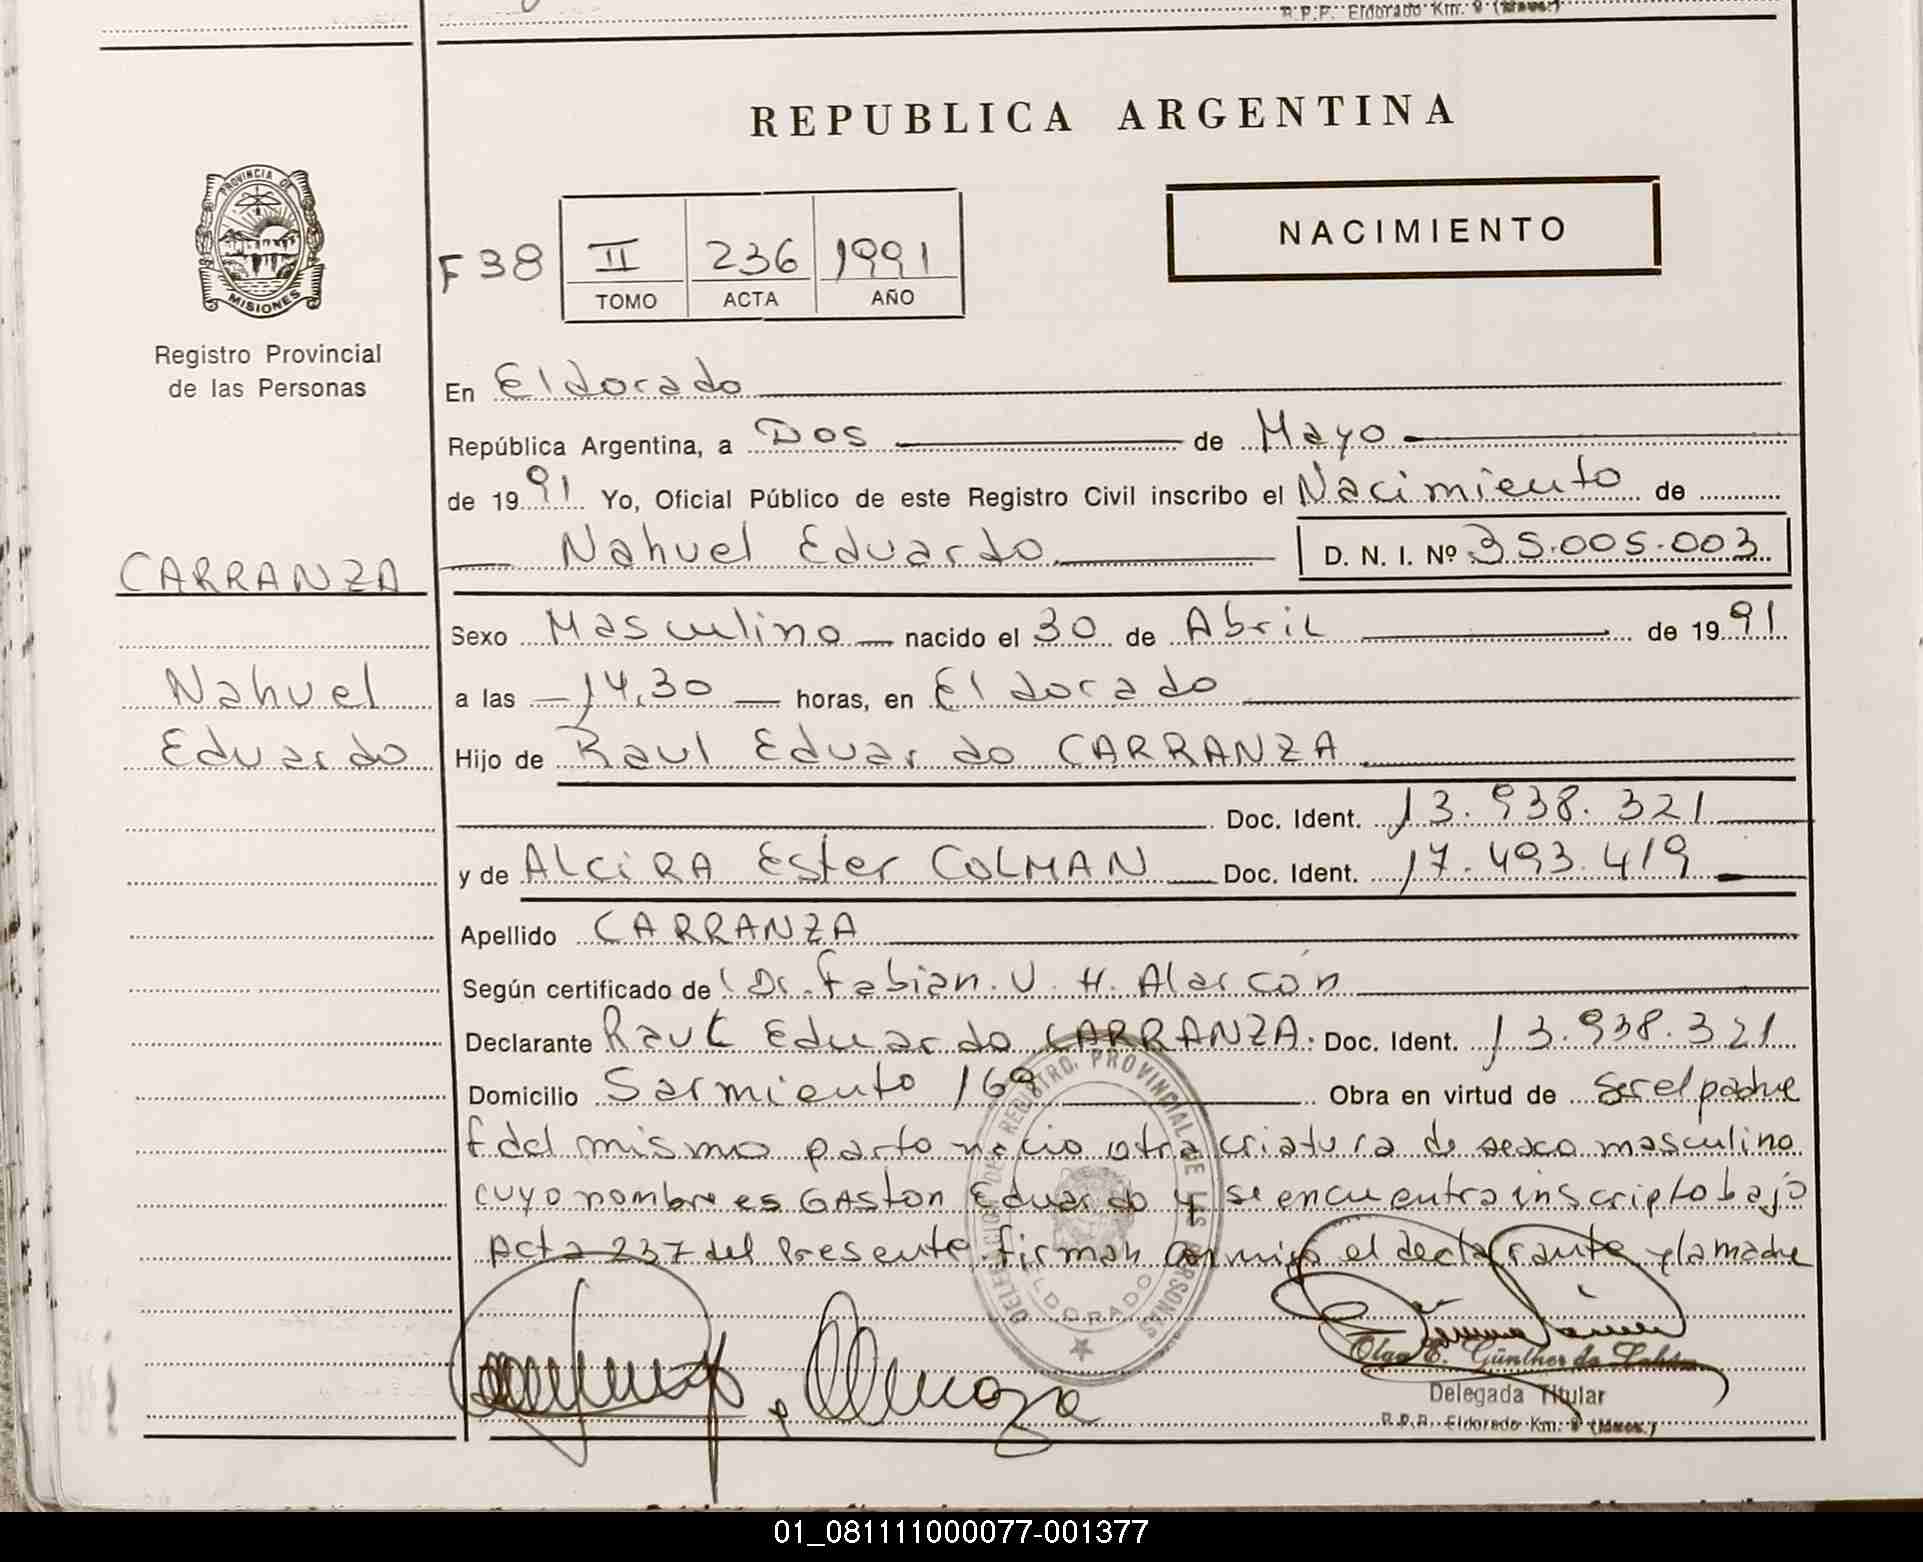 R.P.P. Eldorado Km. 9 (Mnes.)
REPUBLICA ARGENTINA
PROVINCIA DE
MISIONES
Registro Provincial
de las Personas
NACIMIENTO
F 38 II 236 1991
TOMO ACTA AÑO
En Eldorado
República Argentina, a Dos de Mayo
de 1991 Yo, Oficial Público de este Registro Civil inscribo el Nacimiento de
CARRANZA
Nahuel Eduardo D. N. I. Nº 35.005.003
Sexo Masculino nacido el 30 de Abril de 1991
Nahuel
a las 14,30 horas, en Eldorado
Eduardo
Hijo de Raul Eduardo CARRANZA
Doc. Ident. 13.938.321
y de ALCiRA Ester COLMAN Doc. Ident. 17.493.419
Apellido CARRANZA
Según certificado de Dr. Fabian. U. H. Alarcón
Declarante Raul Eduardo CARRANZA. Doc. Ident. 13.938.321
Domicilio Sarmiento 169 Obra en virtud de Ser el padre
f del mismo parto nacio otra criatura de sexo masculino
cuyo nombre es GAston Eduardo y se encuentra inscripto bajo
Acta 237 del Presente, firman conmigo el declarante y la madre
DELEGACION DEL REGISTRO PROVINCIAL DE LAS PERSONAS
ELDORADO
Olga E. Günther de
Delegada Titular
R.P.P. Eldorado Km. 9 (Mnes.)
01_081111000077-001377